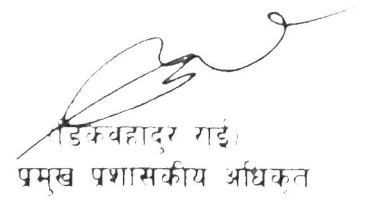 (डिकबहादुर राई)
प्रमुख प्रशासकीय अधिकृत